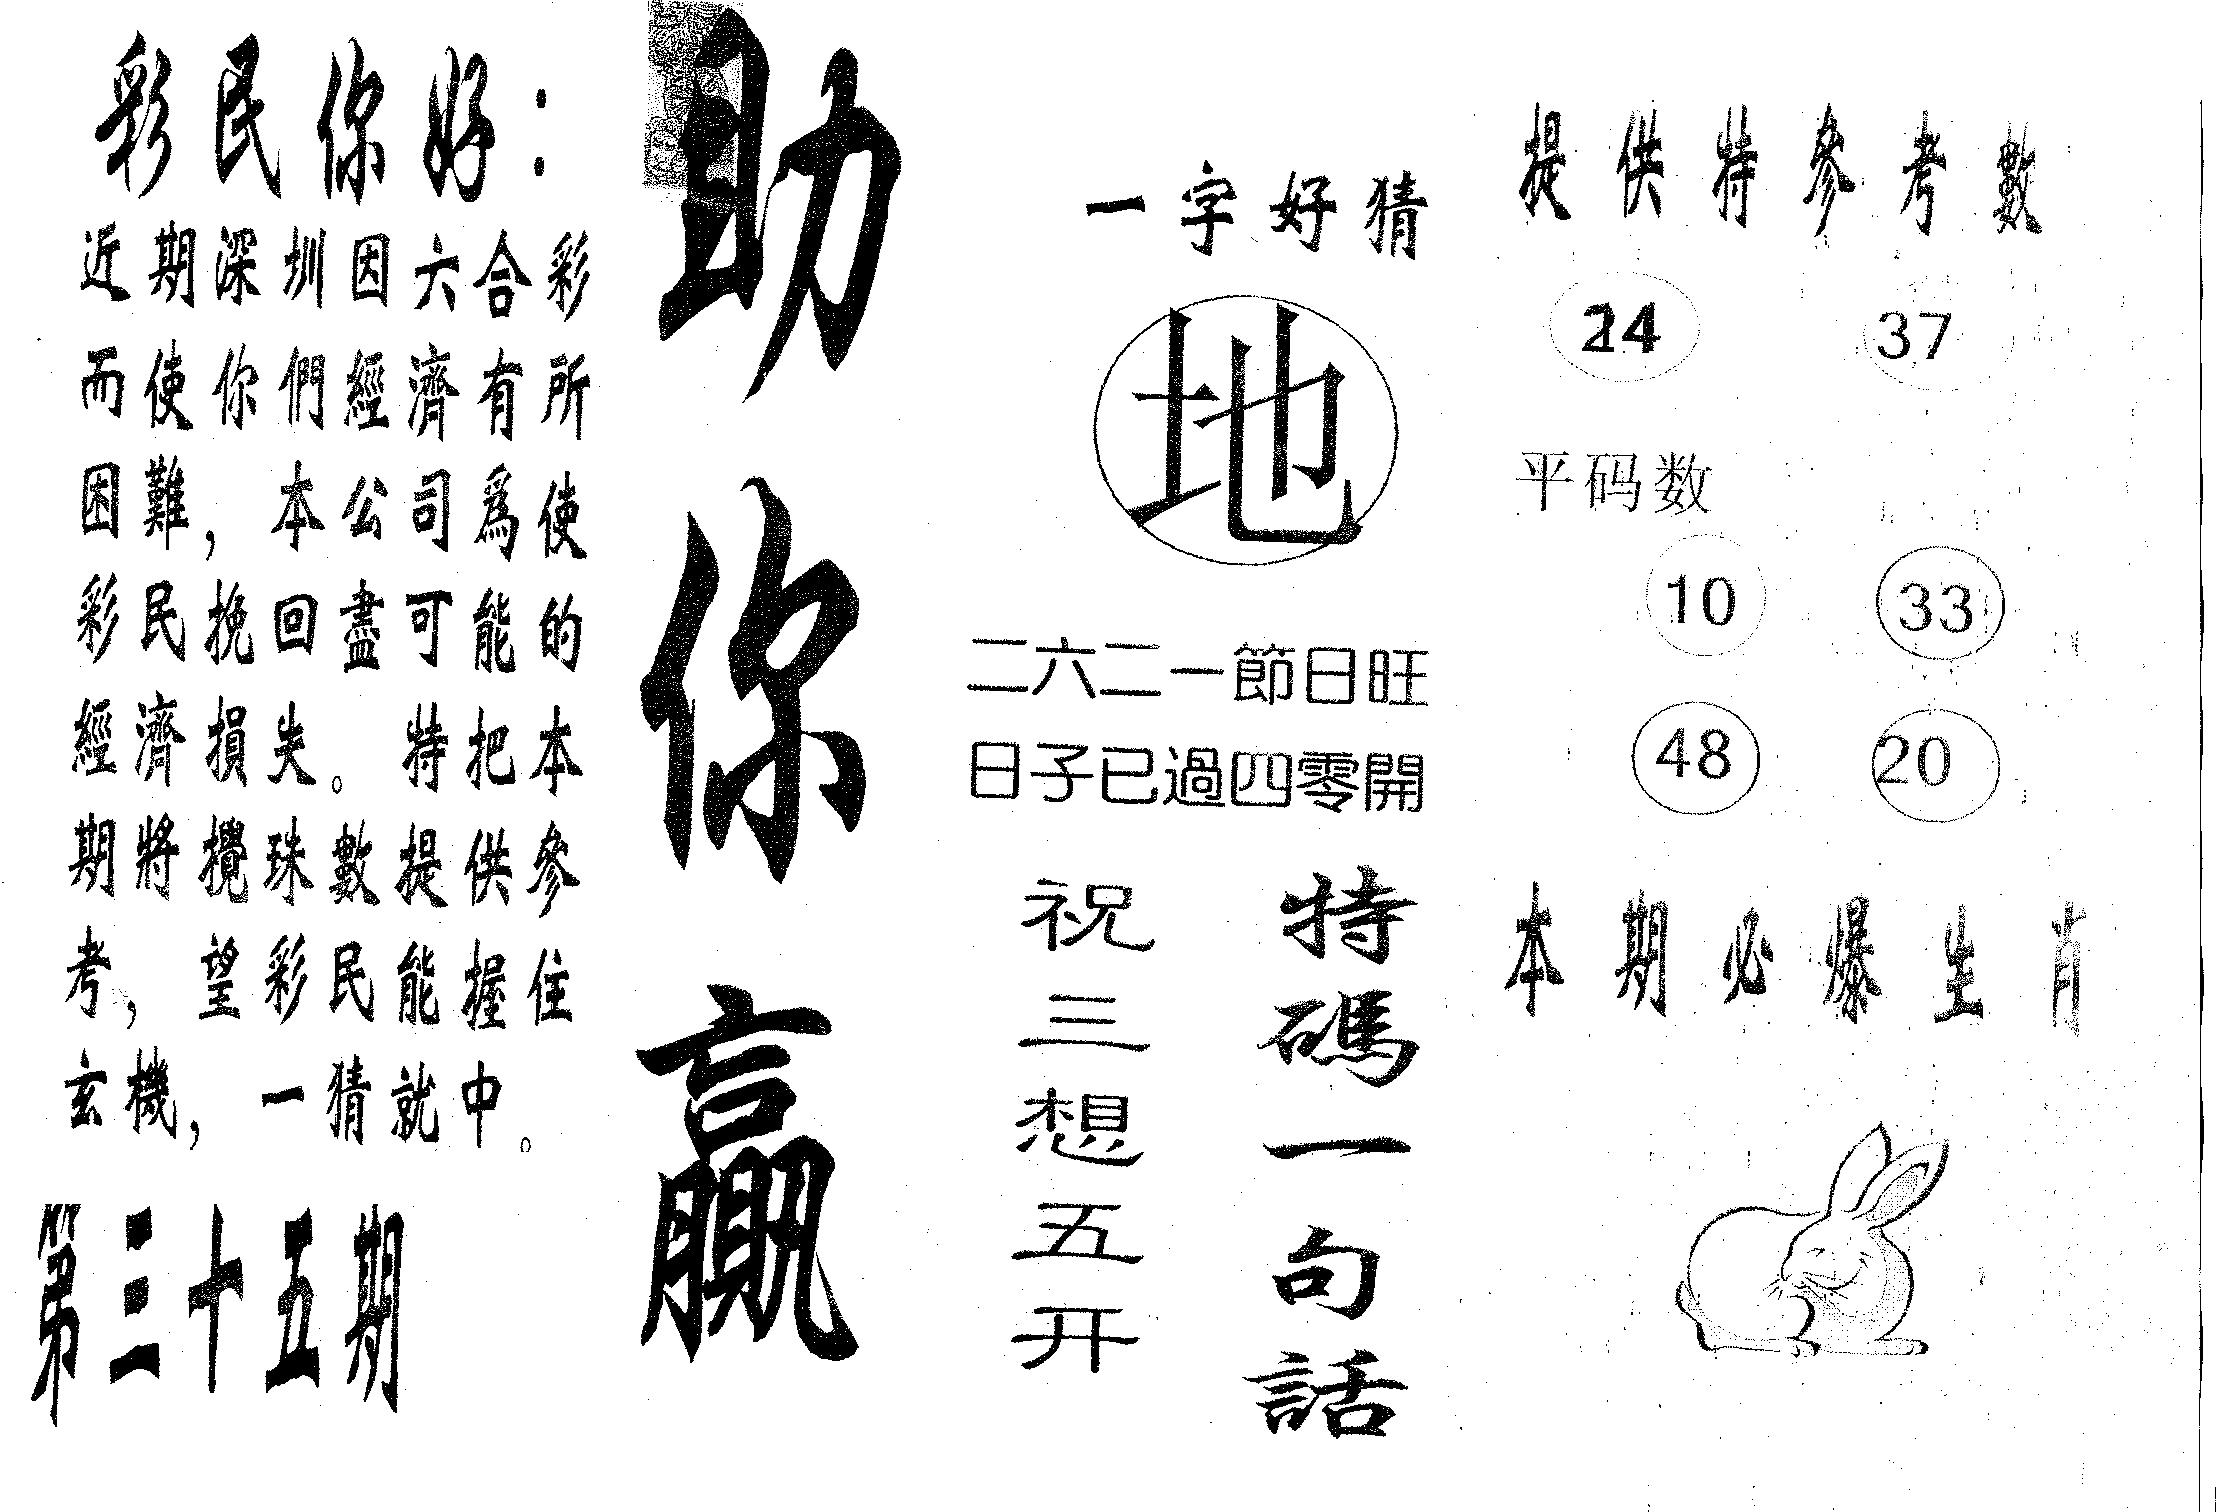 彩民你好：
近期深圳因六合彩
而使你們經濟有所
困難，本公司爲使
彩民挽回盡可能的
經濟損失。特把本
期將攪珠數提供參
考，望彩民能握住
玄機，一猜就中。
第三十五期
助你贏
一字好猜
地
二六二一節日旺
日子已過四零開
特碼一句話
祝三想五开
提供特參考數
37
平码数
10 33
48 20
本期必爆生肖